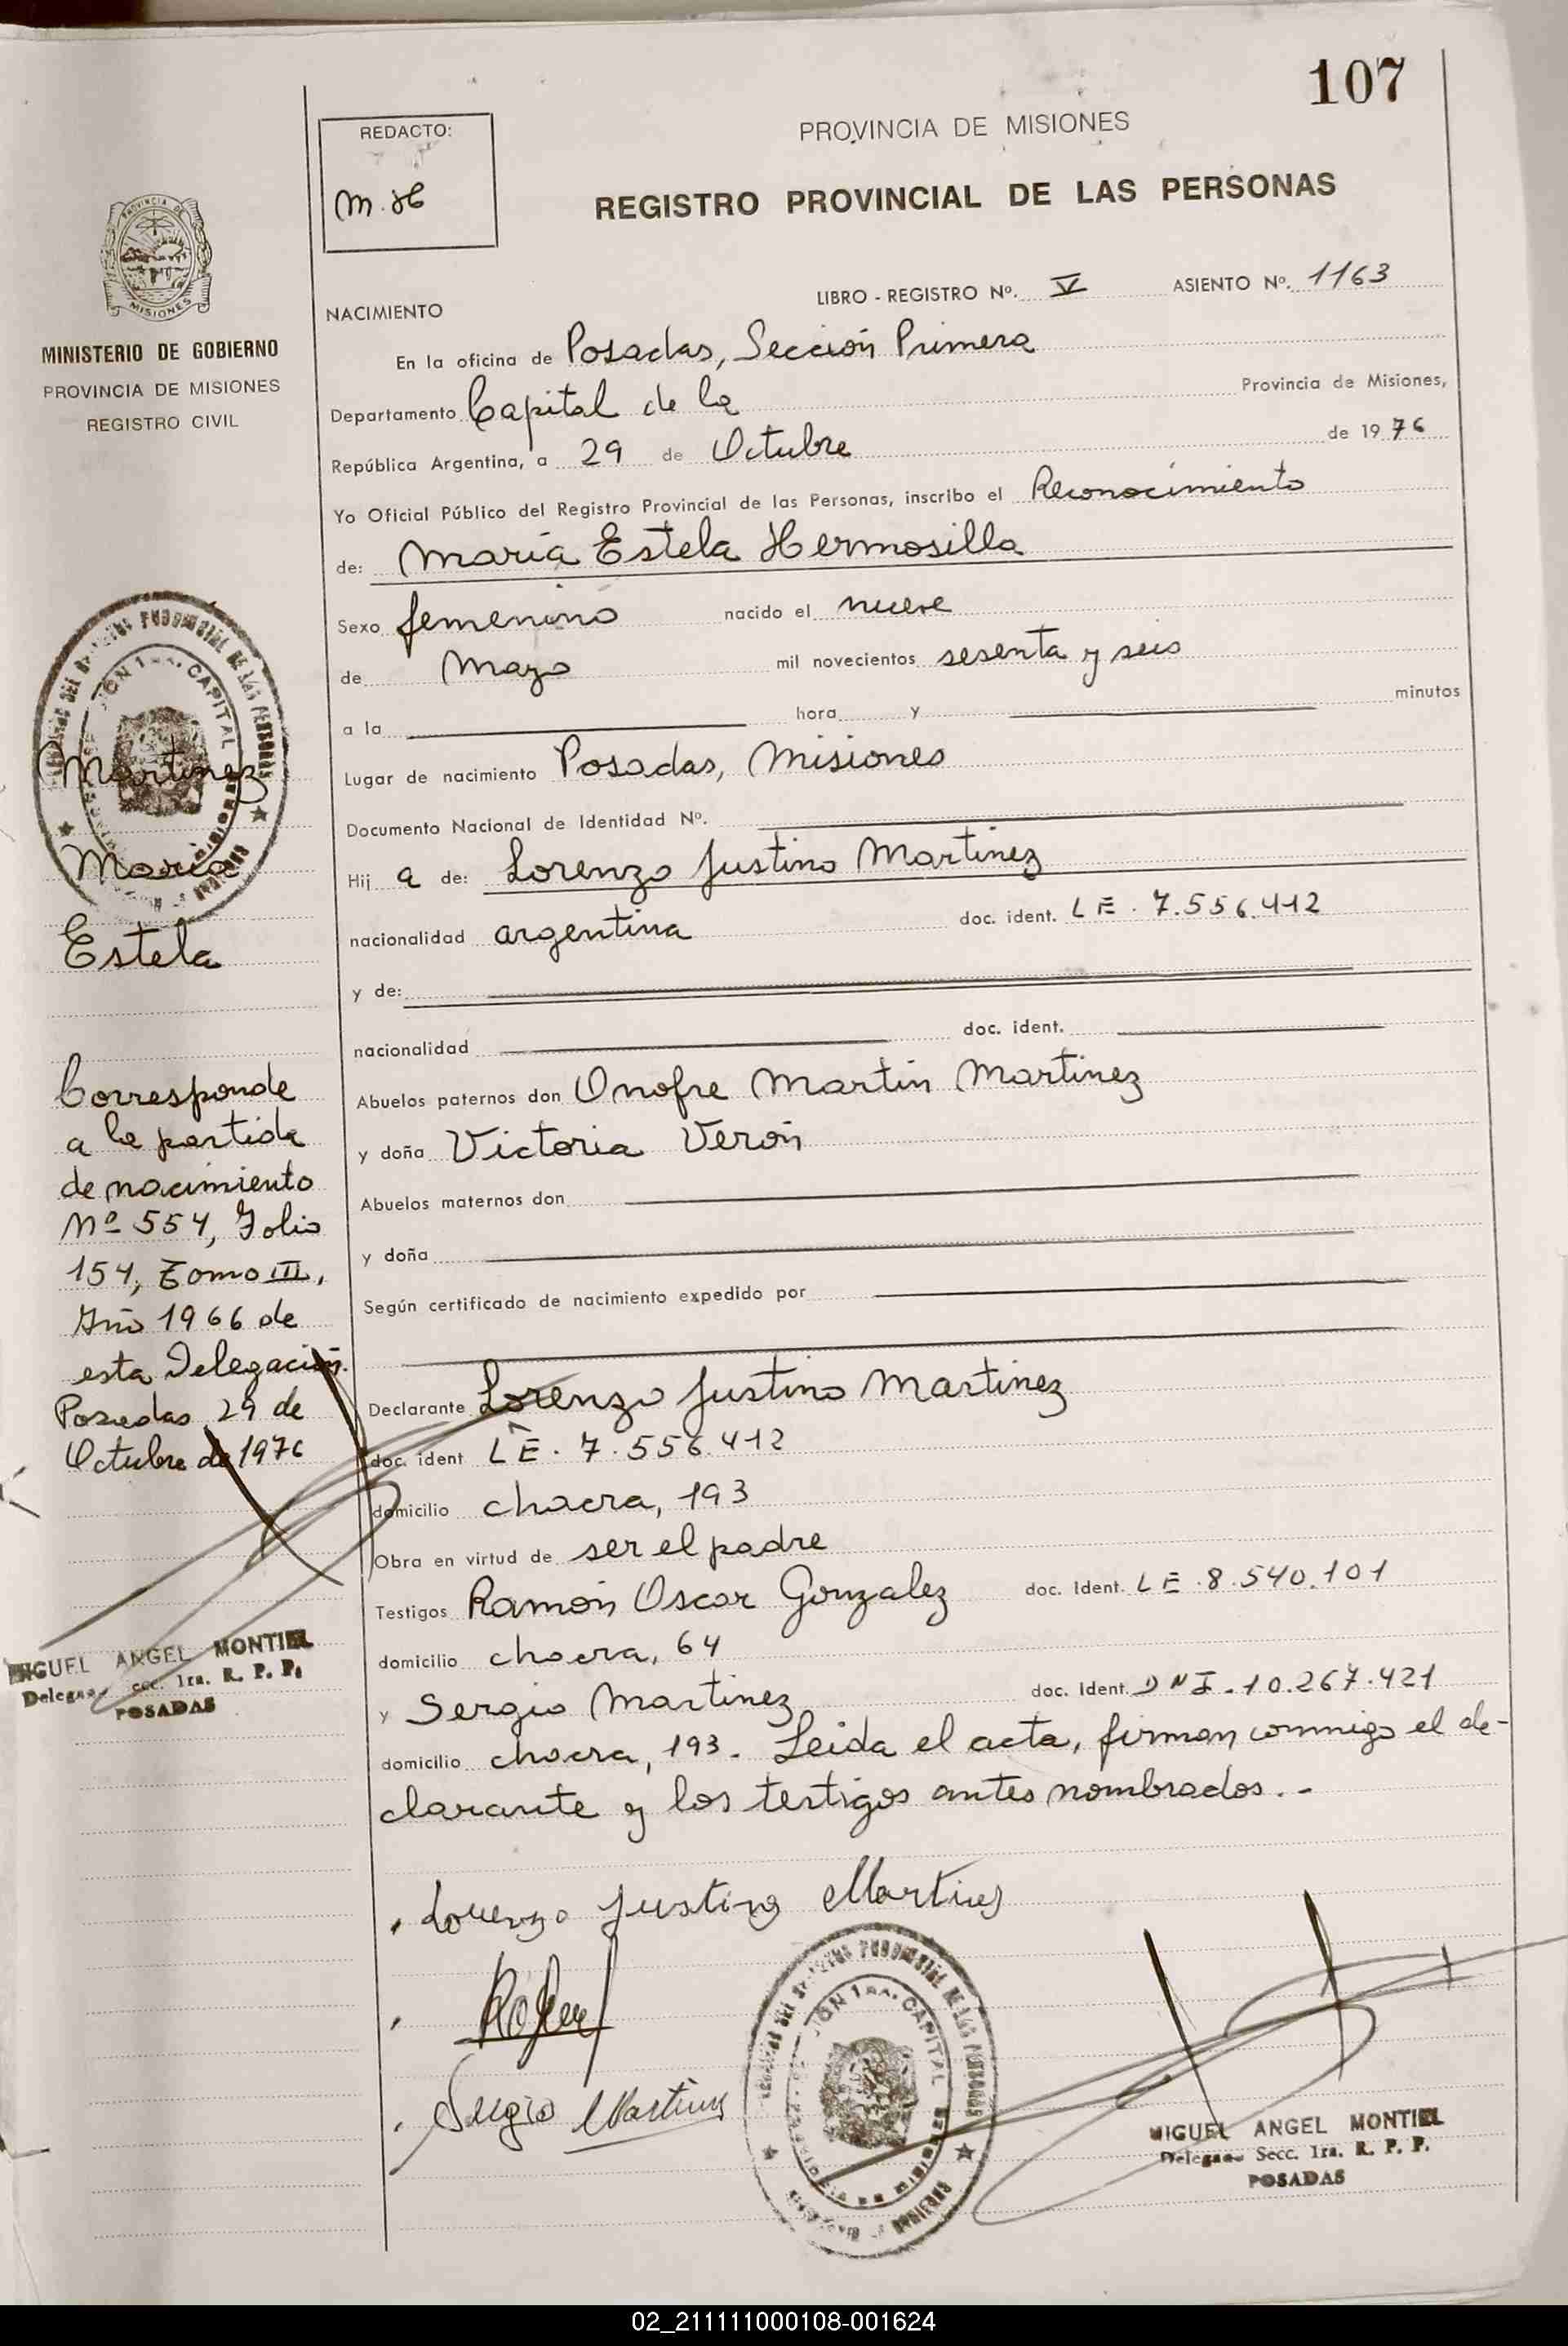 107
REDACTO:
M. H
PROVINCIA DE MISIONES
REGISTRO PROVINCIAL DE LAS PERSONAS
PROVINCIA DE
MISIONES
MINISTERIO DE GOBIERNO
PROVINCIA DE MISIONES
REGISTRO CIVIL
NACIMIENTO
LIBRO - REGISTRO Nº. V ASIENTO Nº. 1163
En la oficina de Posadas, Sección Primera
Departamento Capital de la Provincia de Misiones,
República Argentina, a 29 de Octubre de 1976
Yo Oficial Público del Registro Provincial de las Personas, inscribo el Reconocimiento
de: María Estela Hermosilla
Sexo femenino nacido el nueve
de Mayo mil novecientos sesenta y seis
a la hora y minutos
Lugar de nacimiento Posadas, Misiones
Documento Nacional de Identidad Nº.
Hij a de: Lorenzo Justino Martinez
nacionalidad argentina doc. ident. LE. 7.556.412
y de:
nacionalidad doc. ident.
Abuelos paternos don Onofre Martin Martinez
y doña Victoria Verón
Abuelos maternos don
y doña
Según certificado de nacimiento expedido por
Declarante Lorenzo Justino Martinez
doc. ident LE. 7.556.412
domicilio chacra, 193
Obra en virtud de ser el padre
Testigos Ramón Oscar Gonzalez doc. Ident. LE.8.540.101
domicilio chacra, 64
y Sergio Martinez doc. Ident. DNI.10.267.421
domicilio chacra, 193. Leida el acta, firman conmigo el de-
clarante y los testigos antes nombrados.-
Martinez
María
Estela
Corresponde
a la partida
de nacimiento
Nº 554, Folio
154, Tomo III,
Año 1966 de
esta Delegación.
Posadas 29 de
Octubre de 1976
MIGUEL ANGEL MONTIEL
Delegado Secc. 1ra. R. P. P.
POSADAS
Lorenzo Justino Martinez
Sergio Martinez
CAPITAL
MIGUEL ANGEL MONTIEL
Delegado Secc. 1ra. R. P. P.
POSADAS
02_211111000108-001624